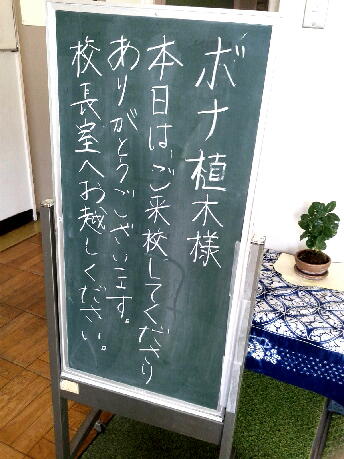 ボナ植木様
本日は、ご来校してくださり
ありがとうございます。
校長室へお越しください。